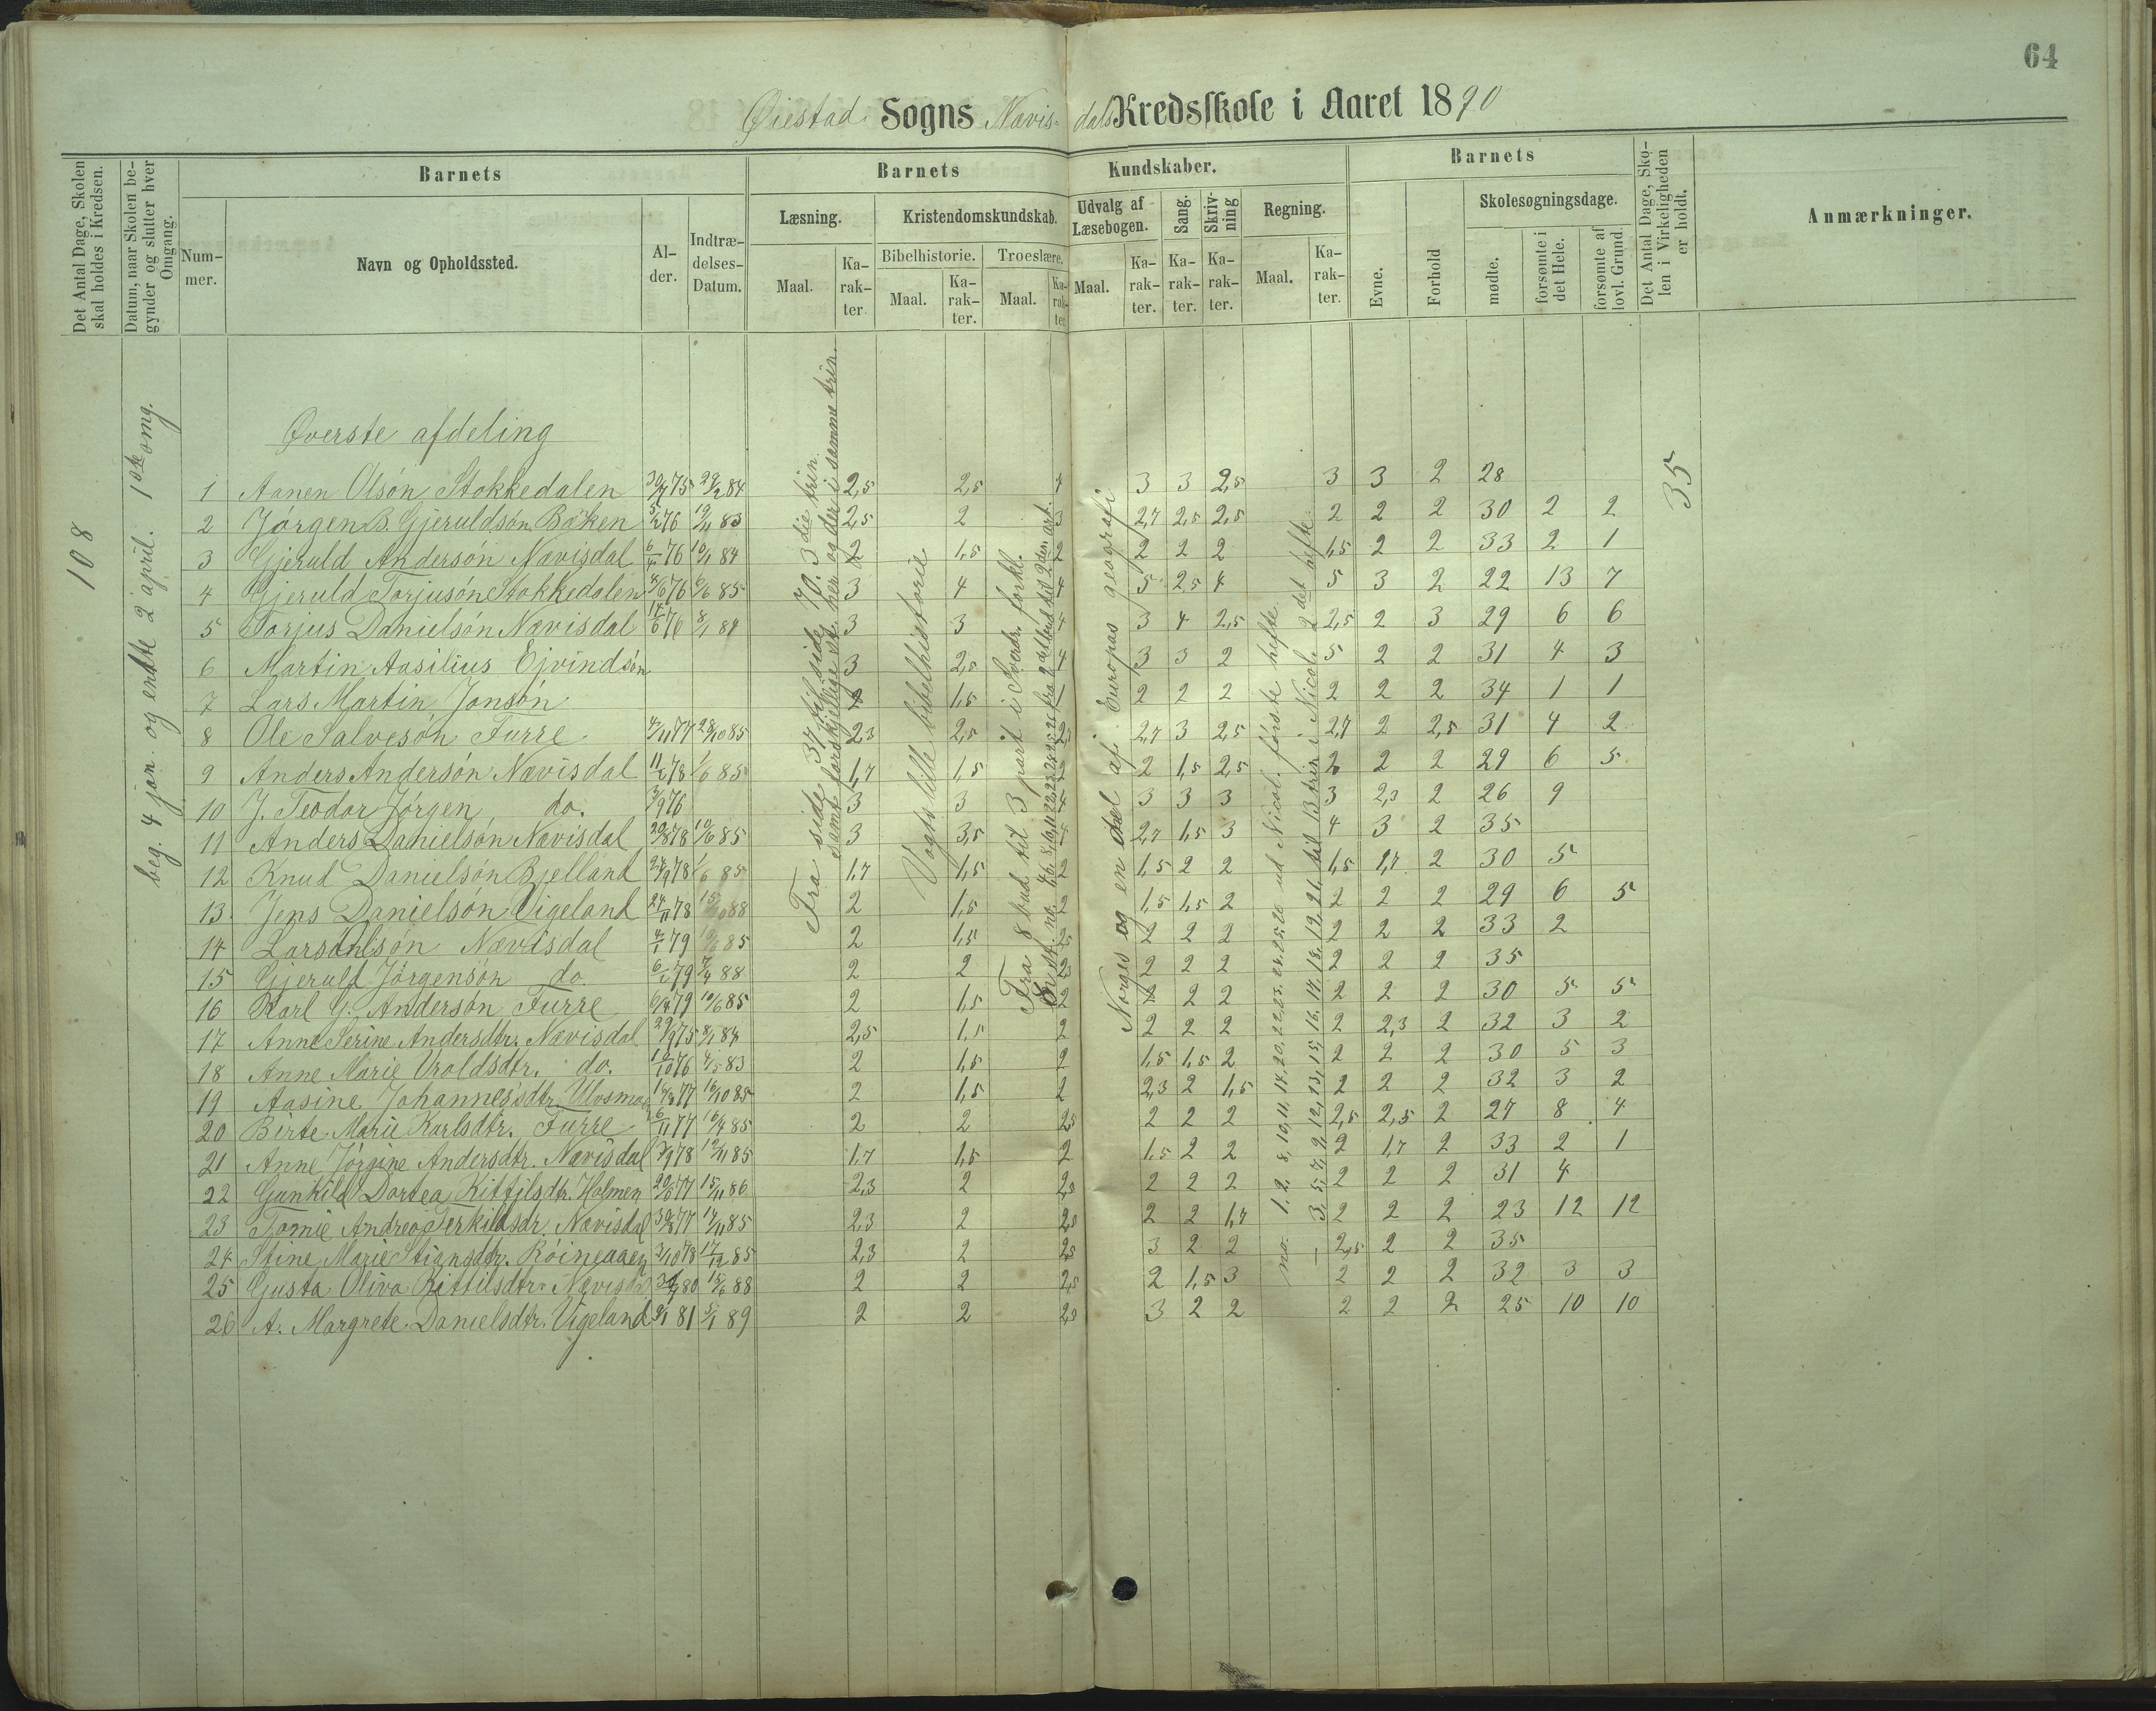 64
Øiestad Sogns Nævisdals Kredsskole i Aaret 1890
Det Antal Dage, Skolen skal holdes i Kredsen.
Datum, naar Skolen begynder og slutter hver Omgang.
Barnets
Nummer.
Navn og Opholdssted.
Alder.
Indtrædelses-Datum.
Barnets Kundskaber.
Læsning.
Maal.
Karakter.
Kristendomskundskab.
Bibelhistorie.
Maal.
Karakter.
Troeslære.
Maal.
Karakter
Udvalg af Læsebogen.
Maal.
Karakter.
Sang.
Karakter.
Skrivning
Karakter.
Regning.
Maal.
Karakter.
Barnets
Evne.
Forhold
Skolesøgningsdage.
mødte.
forsømte i det Hele.
forsømte af lovl. Grund.
Det Antal Dage, Skolen i Virkeligheden er holdt.
Anmærkninger.
108
beg. 4 jan. og endte 2 april. 1ste omg.
Øverste afdeling
Fra side 37 til side 70. 3die trin.
samt forskjellige st. her og der i samme trin.
Vogts lille bibelhistorie
Fra 8 bud til 3 part i Sverdr. forkl.
Norges og en del af Europas geografi
35
1 Aanen Olsøn Stokkedalen 75 84 2,5 2,5 4 3 3 2,5 3 3 2 28
2 Jørgen B. Gjeruldsøn Bøken 76 83 2,5 2 3 2,7 2,5 2,5 2 2 2 30 2 2
3 Gjeruld Andersøn Nævisdal 76 84 2 1,5 2 2 2 2 1,5 2 2 33 2 1
4 Gjeruld Torjusøn Stokkedalen 76 85 3 4 4 5 2,5 4 5 3 2 22 13 7
5 Torjus Danielsøn Nævisdal 76 8/1 84 3 3 4 3 4 2,5 2,5 2 3 29 6 6
6 Martin Aasilius Ejvindsøn 3 2,5 4 3 3 2 5 2 2 31 4 3
7 Lars Martin Jonsøn 1,5 1 2 2 2 2 2 2 34 1 1
8 Ole Salvesøn Furre 4/11 77 28/10 85 2,3 2,5 2,7 3 2,5 2,7 2 2,5 31 4 2
9 Anders Andersøn Nævisdal 78 1/6 85 1,7 1,5 2 2 1,5 2,5 2 2 2 29 6 5
10 J. Teodor Jørgen do. 3/9 76 3 3 4 3 3 3 3 2,3 2 26 9
11 Anders Danielsøn Nævisdal 20/8 78 10/6 85 3 3,5 4 2,7 1,5 3 4 3 2 35
12 Knud Danielsøn Bjelland 24/9 78 1/6 85 1,7 1,5 2 1,5 2 2 1,5 1,7 2 30 5
13 Jens Danielsøn Vigeland 24/11 78 88 2 1,5 2 1,5 1,5 2 2 2 2 29 6 5
14 Lars Nævisdal 79 85 2 1,5 2,5 2 2 2 2 2 2 33 2
15 Gjeruld Jørgensøn do. 79 7/4 88 2 2 2 2 2 2 2 2 35
16 Karl G. Andersøn Furre 79 10/6 85 2 1,5 2 2 2 2 2 2 30 5 5
17 Anne Serine Andersdtr. Nævisdal 29/9 75 8/1 84 2,5 1,5 2 2 2 2 2 2,3 2 32 3 2
18 Anne Marie Uroldsdtr. do. 10/10 76 83 2 1,5 2 1,5 1,5 2 2 2 2 30 5 3
19 Aasine Johannesdtr. 77 16/10 85 2 1,5 2 2,3 2 1,5 2 2 2 32 3 2
20 Birte Marie Karlsdtr. Furre 6/11 77 85 2 2 2,5 2 2 2 2,5 2,5 2 27 8 4
21 Anne Jørgine Andersdtr. Nævisdal 78 85 1,7 1,5 2 1,5 2 2 2 1,7 2 33 2 1
22 Gunhild Dortea Kittilsdtr. Holmen 77 15/11 86 2,3 2 2,5 2 2 2 2 2 2 31 4
23 Tomie Andrea Terkildsdr. Nævisdal 77 14/11 85 2,3 2 2,5 2 2 1,7 2 2 2 23 12 12
24 Stine Marie Stiansdtr. Røineaaen 3/10 78 17/12 85 2,3 2 2,5 3 2 2 2,5 2 2 35
25 Gusta Oliva Kittilsdtr. Nævisd. 80 15/6 88 2 2 2,5 2 1,5 3 2 2 2 32 3 3
26 A. Margrete Danielsdtr. Vigeland 81 5/1 89 2 2 2,5 3 2 2 2 2 2 25 10 10